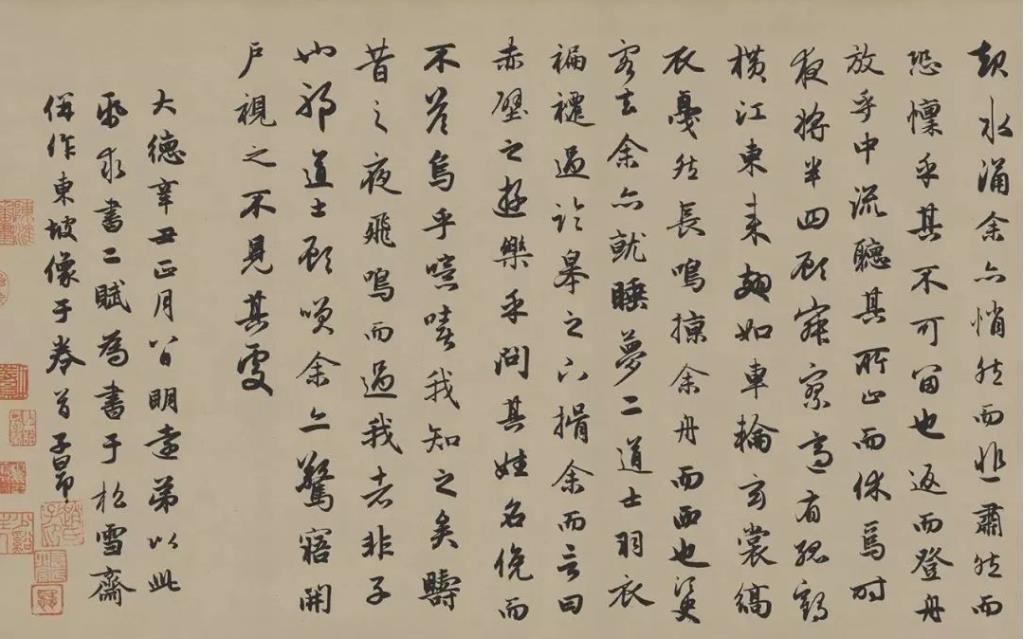 起水涌余亦悄然而悲肅然而
恐懍乎其不可留也返而登舟
放乎中流聽其所止而休焉時
夜將半四顧寂寥適有孤鶴
橫江東來翅如車輪玄裳縞
衣戛然長鳴掠余舟而西也須臾
客去余亦就睡夢二道士羽衣
褊褼過臨皋之下揖余而言曰
赤壁之遊樂乎問其姓名俛而
不答烏乎噫嘻我知之矣疇
昔之夜飛鳴而過我者非子
也耶道士顧笑余亦驚寤開
戶視之不見其處
大德辛丑正月八日明遠弟以此
紙求書二賦為書于松雪齋
併作東坡像于卷首子昂